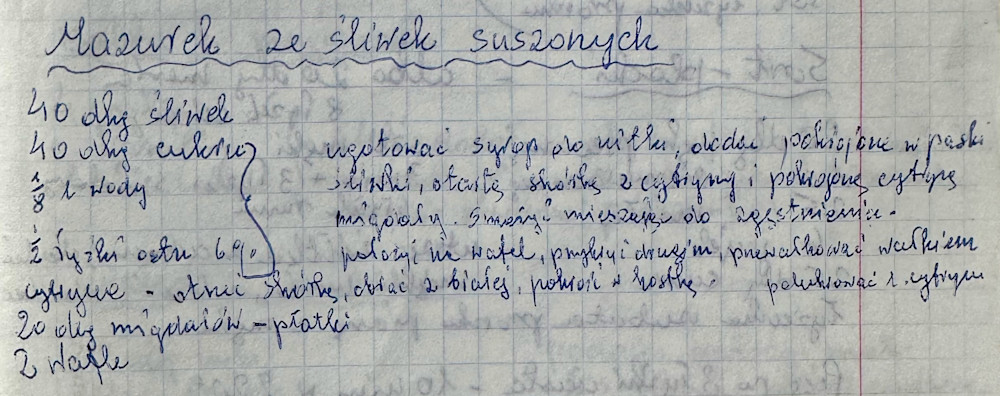 Mazurek ze śliwek suszonych
40 dkg śliwek
40 dkg cukru
1/8 l wody
1/2 łyżki octu 6%
ugotować syrop do nitki, dodać pokrojone w paski
śliwki, otartą skórkę z cytryny i pokrojoną cytrynę
migdały. Smażyć mieszając do zgęstnienia.
położyć na wafel, przykryć drugim, przewałkować wałkiem
cytryna - otrzeć skórkę, obrać z białej, pokroić w kostkę. polukrować l. cytryn
20 dkg migdałów - płatki
2 wafle